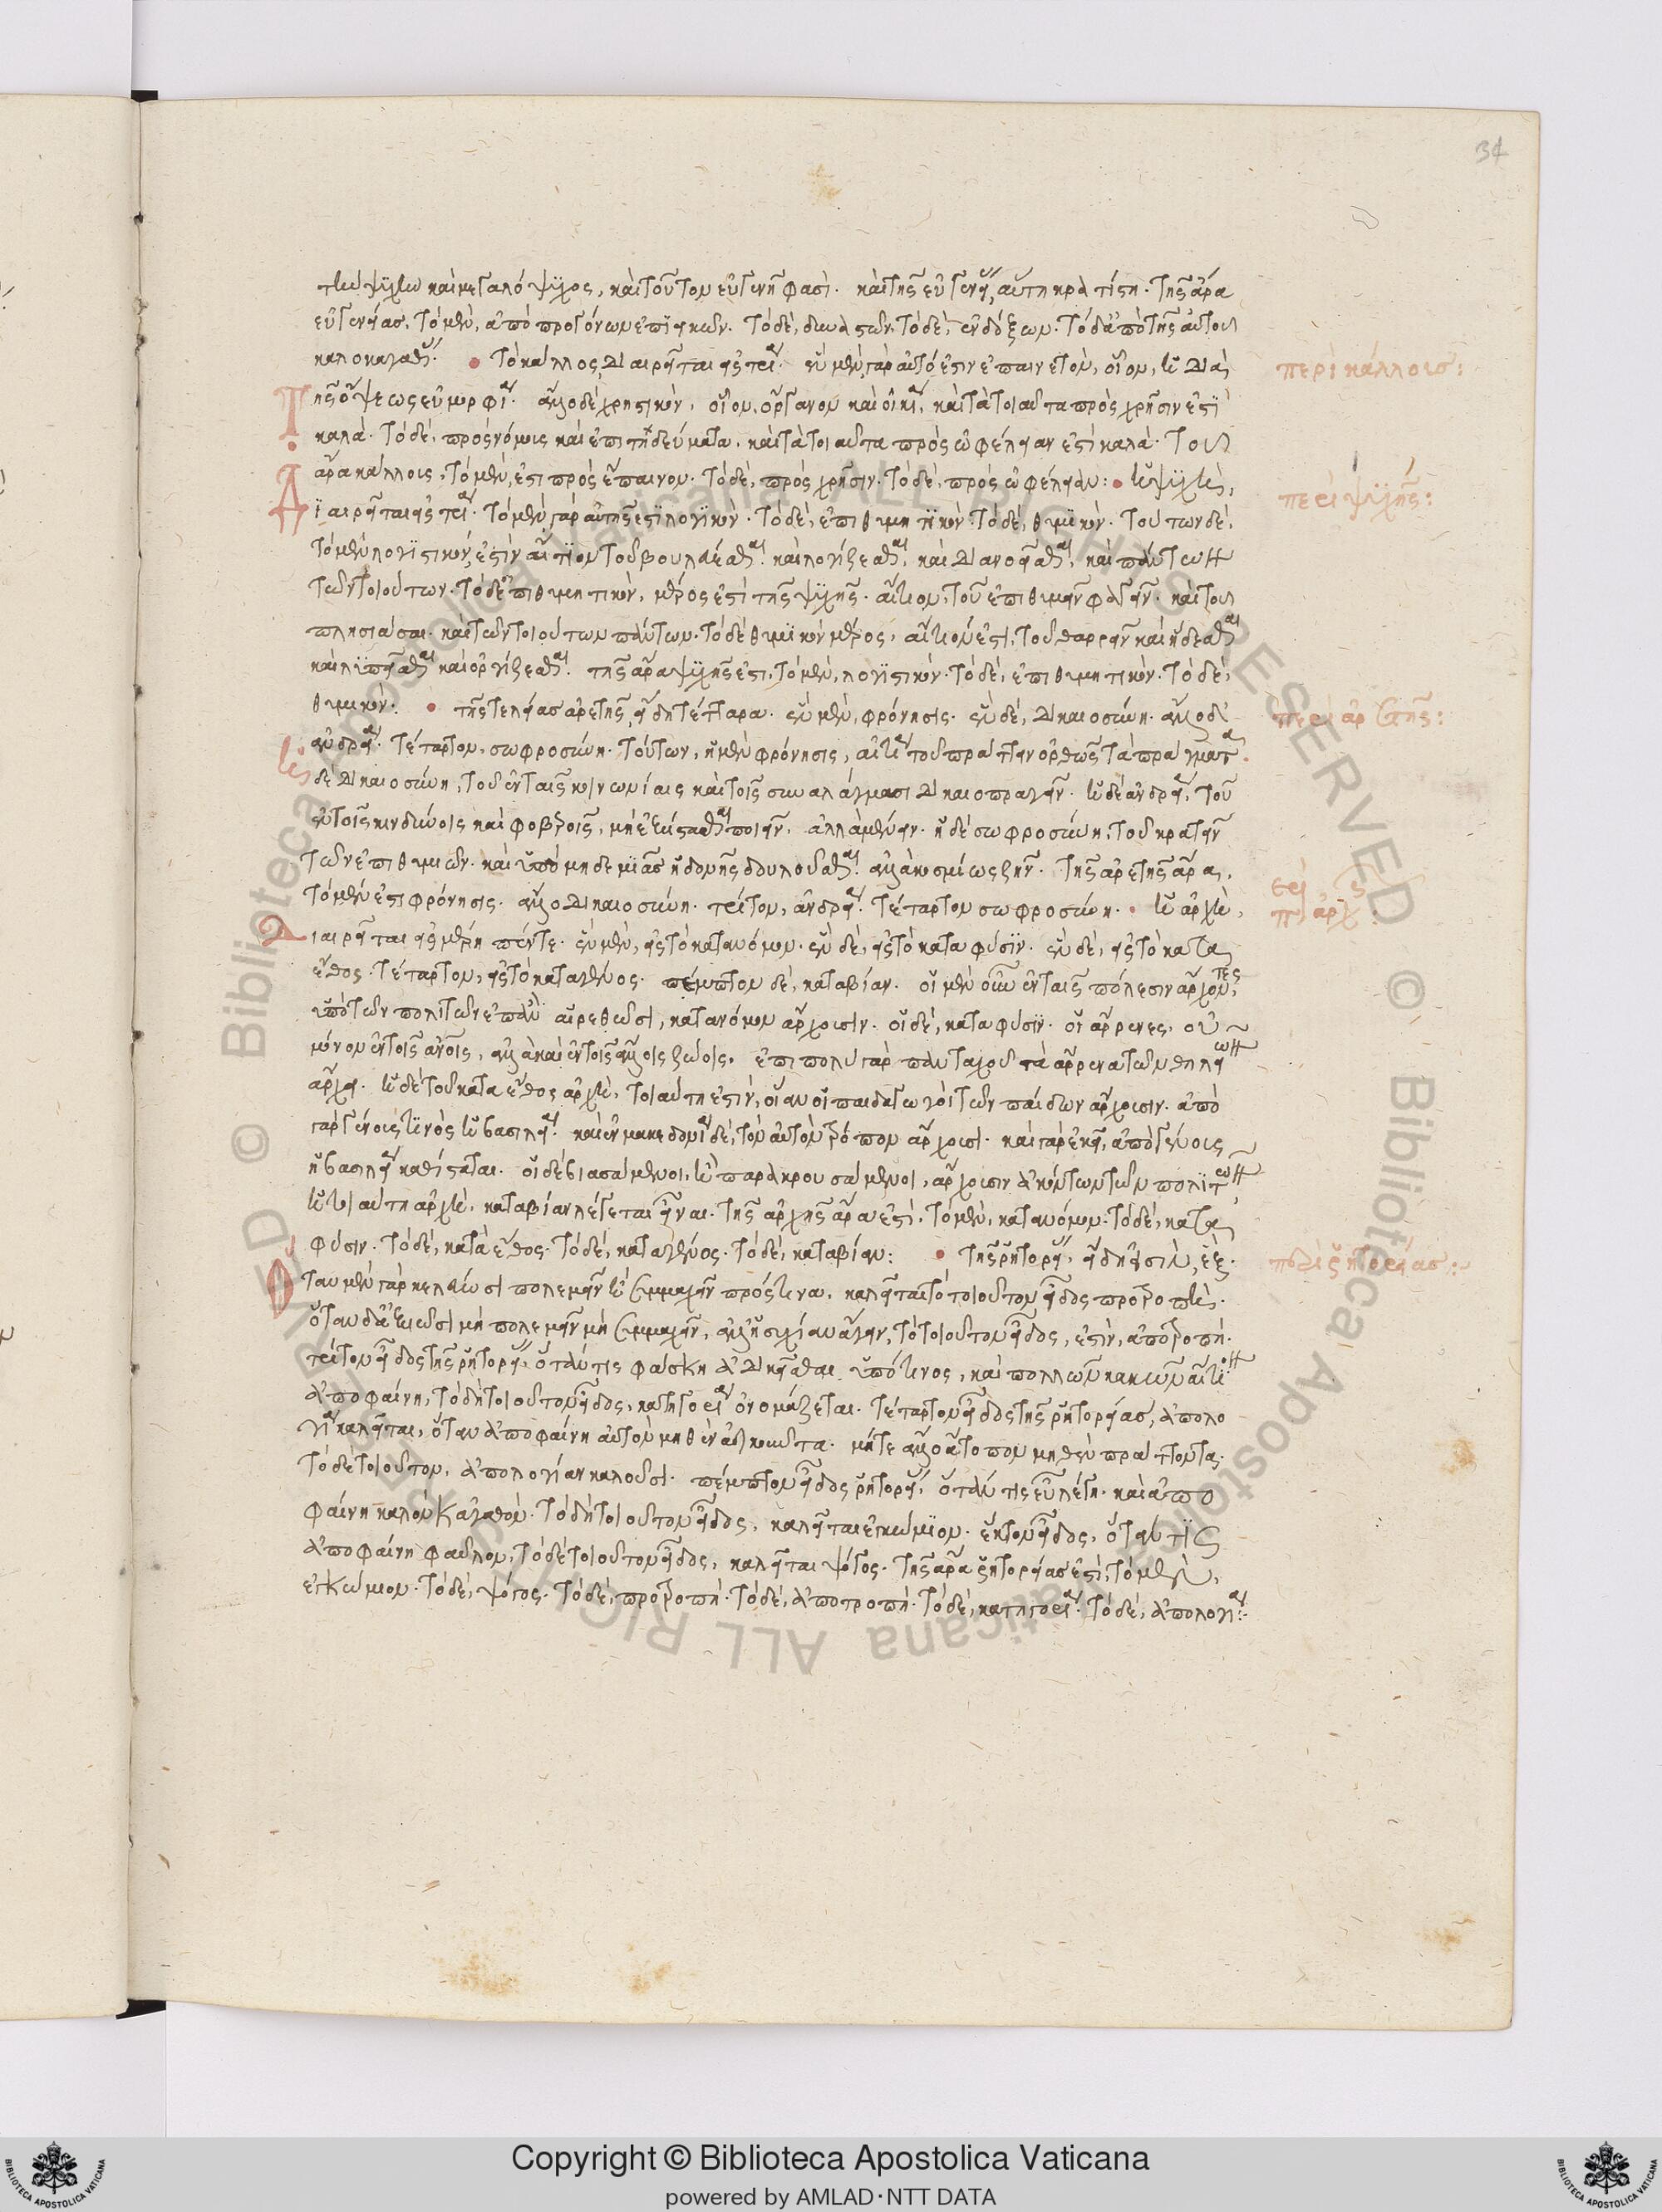 34
τὴν ψυχὴν καὶ μεγαλόψυχος, καὶ τοῦτον εὐγενῆ φασί. καὶ τῆς εὐγενείας, αὕτη κρατίστη. τῆς ἄρα
εὐγενείας, τὸ μὲν, ἀπὸ προγόνων ἐπιεικῶν. τὸ δὲ, δυναστῶν. τὸ δὲ, ἐνδόξων. τὸ δ' ἀπὸ τῆς αὐτοῦ
καλοκαγαθίας. τὸ κάλλος διαιρεῖται εἰς τρία. ἓν μὲν γὰρ αὐτό ἐστιν ἐπαινετὸν, οἷον, ἡ διὰ
περὶ κάλλους:
τῆς ὄψεως εὐμορφία. ἄλλο δὲ χρηστικόν, οἷον, ὄργανον καὶ οἰκία, καὶ τὰ τοιαῦτα πρὸς χρῆσιν ἐστὶ
καλά. τὸ δὲ, πρὸς νόμους καὶ ἐπιτηδεύματα, καὶ τὰ τοιαῦτα πρὸς ὠφέλειαν ἐστὶ καλά. τοῦ
ἄρα κάλλους, τὸ μὲν, ἐστι πρὸς ἔπαινον. τὸ δὲ, πρὸς χρῆσιν. τὸ δὲ, πρὸς ὠφέλειαν: ἡ ψυχὴ,
περὶ ψυχῆς:
Διαιρεῖται εἰς τρία. τὸ μὲν γὰρ αὐτῆς ἐστὶ λογικὸν. τὸ δὲ, ἐπιθυμητικὸν. τὸ δὲ, θυμικὸν. τούτων δὲ,
τὸ μὲν λογιστικόν, ἐστὶν αἴτιον τοῦ βουλεύεσθαι καὶ λογίζεσθαι, καὶ διανοεῖσθαι, καὶ πάντων
τῶν τοιούτων. τὸ δ' ἐπιθυμητικὸν, μέρος ἐστὶ τῆς ψυχῆς, αἴτιον, τοῦ ἐπιθυμεῖν φαγεῖν. καὶ τοῦ
πλησιάσαι. καὶ τῶν τοιούτων πάντων. τὸ δὲ θυμικὸν μέρος, αἴτιόν ἐστι, τοῦ θαρρεῖν καὶ ἥδεσθαι
καὶ λυπεῖσθαι καὶ ὀργίζεσθαι. τῆς ἄρα ψυχῆς ἐστι, τὸ μὲν, λογιστικὸν. τὸ δὲ, ἐπιθυμητικὸν. τὸ δὲ,
θυμικὸν. τῆς τελείας ἀρετῆς εἴδη τέτταρα. ἓν μὲν, φρόνησις. ἓν δὲ, δικαιοσύνη. ἄλλο δ'
περὶ ἀρετῆς:
ἀνδρεία. τέταρτον, σωφροσύνη. τούτων, ἡ μὲν φρόνησις, αἰτία τοῦ πράττειν ὀρθῶς τὰ πράγματα.
ἡ δὲ δικαιοσύνη, τοῦ ἐν ταῖς κοινωνίαις καὶ τοῖς συναλάγμασι δικαιοπραγεῖν. ἡ δὲ ἀνδρεία, τοῦ
ἐν τοῖς κινδύνοις καὶ φοβεροῖς, μὴ ἐξίστασθαι ποιεῖν, ἀλλὰ μένειν. ἡ δὲ σωφροσύνη, τοῦ κρατεῖν
τῶν ἐπιθυμιῶν. καὶ ὑπὸ μηδεμιᾶς ἡδονῆς δουλοῦσθαι. ἀλλὰ κοσμίως ζῆν. τῆς ἀρετῆς ἄρα,
τὸ μὲν ἐστι φρόνησις. ἄλλο δικαιοσύνη. τρίτον, ἀνδρεία. τέταρτον σωφροσύνη. ἡ ἀρχὴ,
περὶ ἀρχῆς:
Διαιρεῖται εἰς μέρη πέντε. ἓν μὲν, εἰς τὸ κατα νόμον. ἓν δὲ, εἰς τὸ κατα φύσιν. ἓν δὲ, εἰς τὸ κατα
ἔθος. τέταρτον, εἰς τὸ κατα γένος. πέμπτον δὲ, κατα βίαν. οἱ μὲν οὖν ἐν ταῖς πόλεσιν ἄρχοντες,
ὑπὸ τῶν πολιτῶν ἐπὰν αἱρεθῶσι, κατα νόμον ἄρχουσιν. οἱ δὲ, κατα φύσιν. οἱ ἄρρενες, οὐ
μόνον ἐν τοῖς ἀνοις, ἀλλὰ καὶ ἐν τοῖς ἄλλοις ζώοις. ἐπι πολυ γὰρ πανταχοῦ τὰ ἄρρενα τῶν θηλειῶν
ἄρχει. ἡ δὲ τοῦ κατα ἔθος ἀρχὴ, τοιαύτη ἐστὶν, οἵαν οἱ παιδαγωγοὶ τῶν παίδων ἄρχουσιν. ἀπὸ
γὰρ γένους τινὸς ἡ βασιλεία. καὶ ἐν μακεδονία δὲ, τὸν αὐτὸν τρόπον ἄρχουσι. καὶ γὰρ ἐκεῖ, ἀπὸ γένους
ἡ βασιλεία καθίσταται. οἱ δὲ βιασάμενοι, ἢ παρακρουσάμενοι, ἄρχουσιν ἀκόντων τῶν πολιτῶν,
ἡ τοιαύτη ἀρχὴ, κατα βίαν λέγεται εἶναι. τῆς ἀρχῆς ἄρα ἐστὶ, τὸ μὲν, κατα νόμον. τὸ δὲ, κατα
φύσιν. τὸ δὲ, κατὰ ἔθος. τὸ δὲ, κατα γένος. τὸ δὲ, κατα βίαν: τῆς ῥητορείας, εἴδη εἰσὶν, ἕξ.
περὶ ῥητορείας:
Ὅταν μὲν γὰρ κελεύωσι πολεμεῖν ἢ συμμαχεῖν πρός τινα, καλεῖται τὸ τοιοῦτον εἶδος προτροπὴ.
ὅταν δ' ἀξιῶσι μὴ πολεμεῖν μὴ συμμαχεῖν, ἀλλ' ἡσυχίαν ἄγειν, τὸ τοιοῦτον εἶδος, ἐστὶν, ἀποτροπή.
τρίτον εἶδος τῆς ῥητορείας, ὅταν τις φάσκη ἀδικεῖσθαι ὑπό τινος, καὶ πολλῶν κακῶν αἴτιον
ἀποφαίνη, τὸ δὴ τοιοῦτον εἶδος, κατηγορία ὀνομάζεται. τέταρτον εἶδος τῆς ῥητορείας, ἀπολο
γία καλεῖται, ὅταν ἀποφαίνη αὑτὸν μηθὲν ἀδικοῦντα. μήτε ἄλλο ἄτοπον μηθὲν πράττοντα.
τὸ δε τοιοῦτον, ἀπολογίαν καλοῦσι. πέμπτον εἶδος ῥητορείας, ὅταν τις εὖ λέγη. καὶ ἀπο
φαίνη καλὸν κἀγαθὸν. τὸ δὴ τοιοῦτον εἶδος, καλεῖται ἐγκώμιον. ἕκτον εἶδος, ὅταν τις
ἀποφαίνη φαῦλον, τὸ δὲ τοιοῦτον εἶδος, καλεῖται ψόγος. τῆς ἄρα ῥητορείας ἐστὶ, τὸ μὲν,
ἐγκώμιον. τὸ δὲ, ψόγος. τὸ δὲ, προτροπή. τὸ δὲ, ἀποτροπή. τὸ δὲ, κατηγορία. τὸ δὲ, ἀπολογία:
Copyright © Biblioteca Apostolica Vaticana
powered by AMLAD·NTT DATA